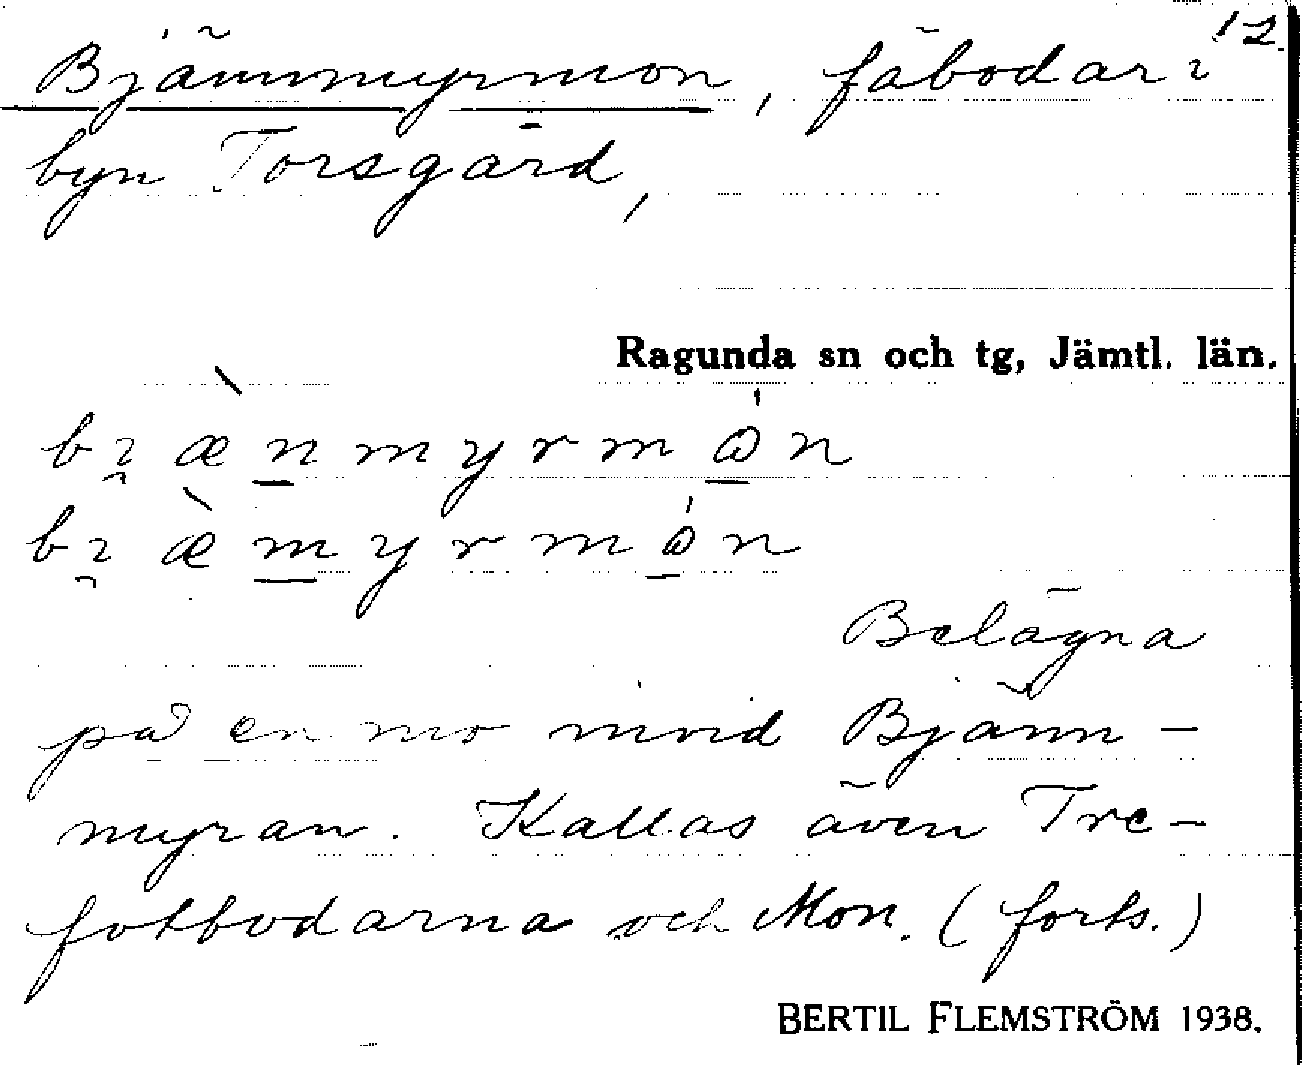 12.
Bjännmyrmon, fäbodar i
byn Torsgård,
Ragunda sn och tg, Jämtl. län.
bi̯æ̀n̲myrmɷ̲́n
bi̯æ̀m̲yrmɷ̲́n
Belägna
på en mo invid Bjänn-
myran. Kallas även Tre-
fotbodarna och Mon. (forts.)
BERTIL FLEMSTRÖM 1938.